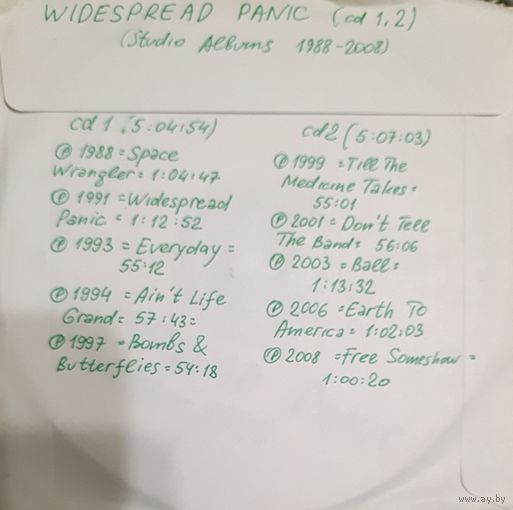 WIDESPREAD PANIC (cd 1,2)
(Studio Albums 1988-2008)
cd 1 (5:04:54)
℗ 1988 = Space
Wrangler = 1:04:47
℗ 1991 = Widespread
Panic = 1:12:52
℗ 1993 = Everyday =
55:12
℗ 1994 = Ain't Life
Grand = 57:43 =
℗ 1997 = Bombs &
Butterflies = 54:18
cd2 (5:07:03)
℗ 1999 = Till The
Medicine Takes =
55:01
℗ 2001 = Don't Tell
The Band = 56:06
℗ 2003 = Ball =
1:13:32
℗ 2006 = Earth To
America = 1:02:03
℗ 2008 = Free Someshow =
1:00:20
www.ay.by